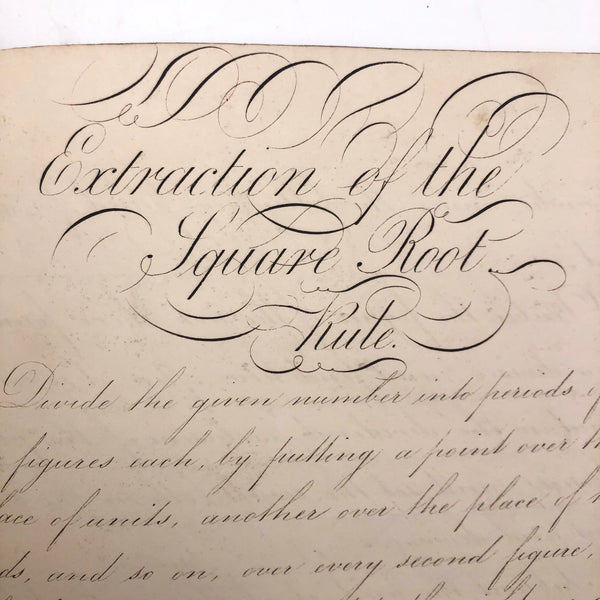 Extraction of the
Square Root.
Rule.
Divide the given number into periods
figures each, by putting a point over
lace of units, another over the place of
ds, and so on, over every second figure,